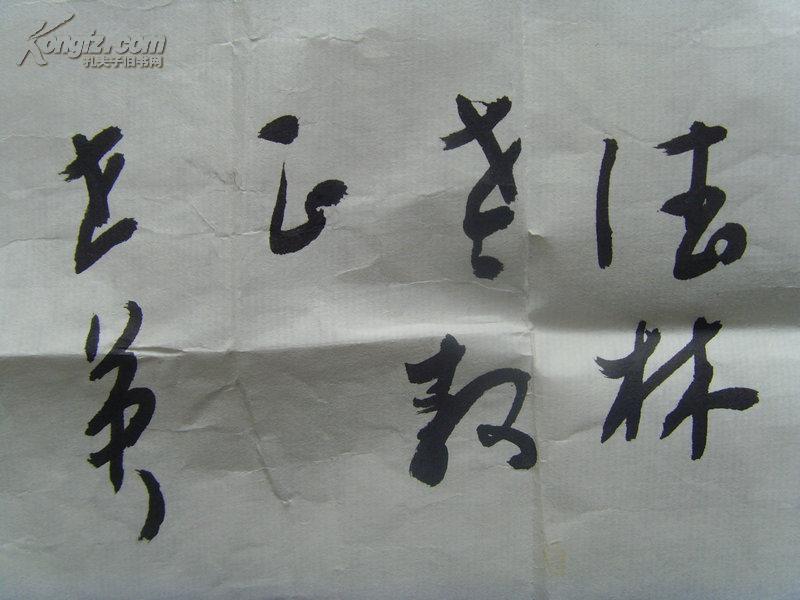 Kongfz.com
孔夫子旧书网
德林
老教
正